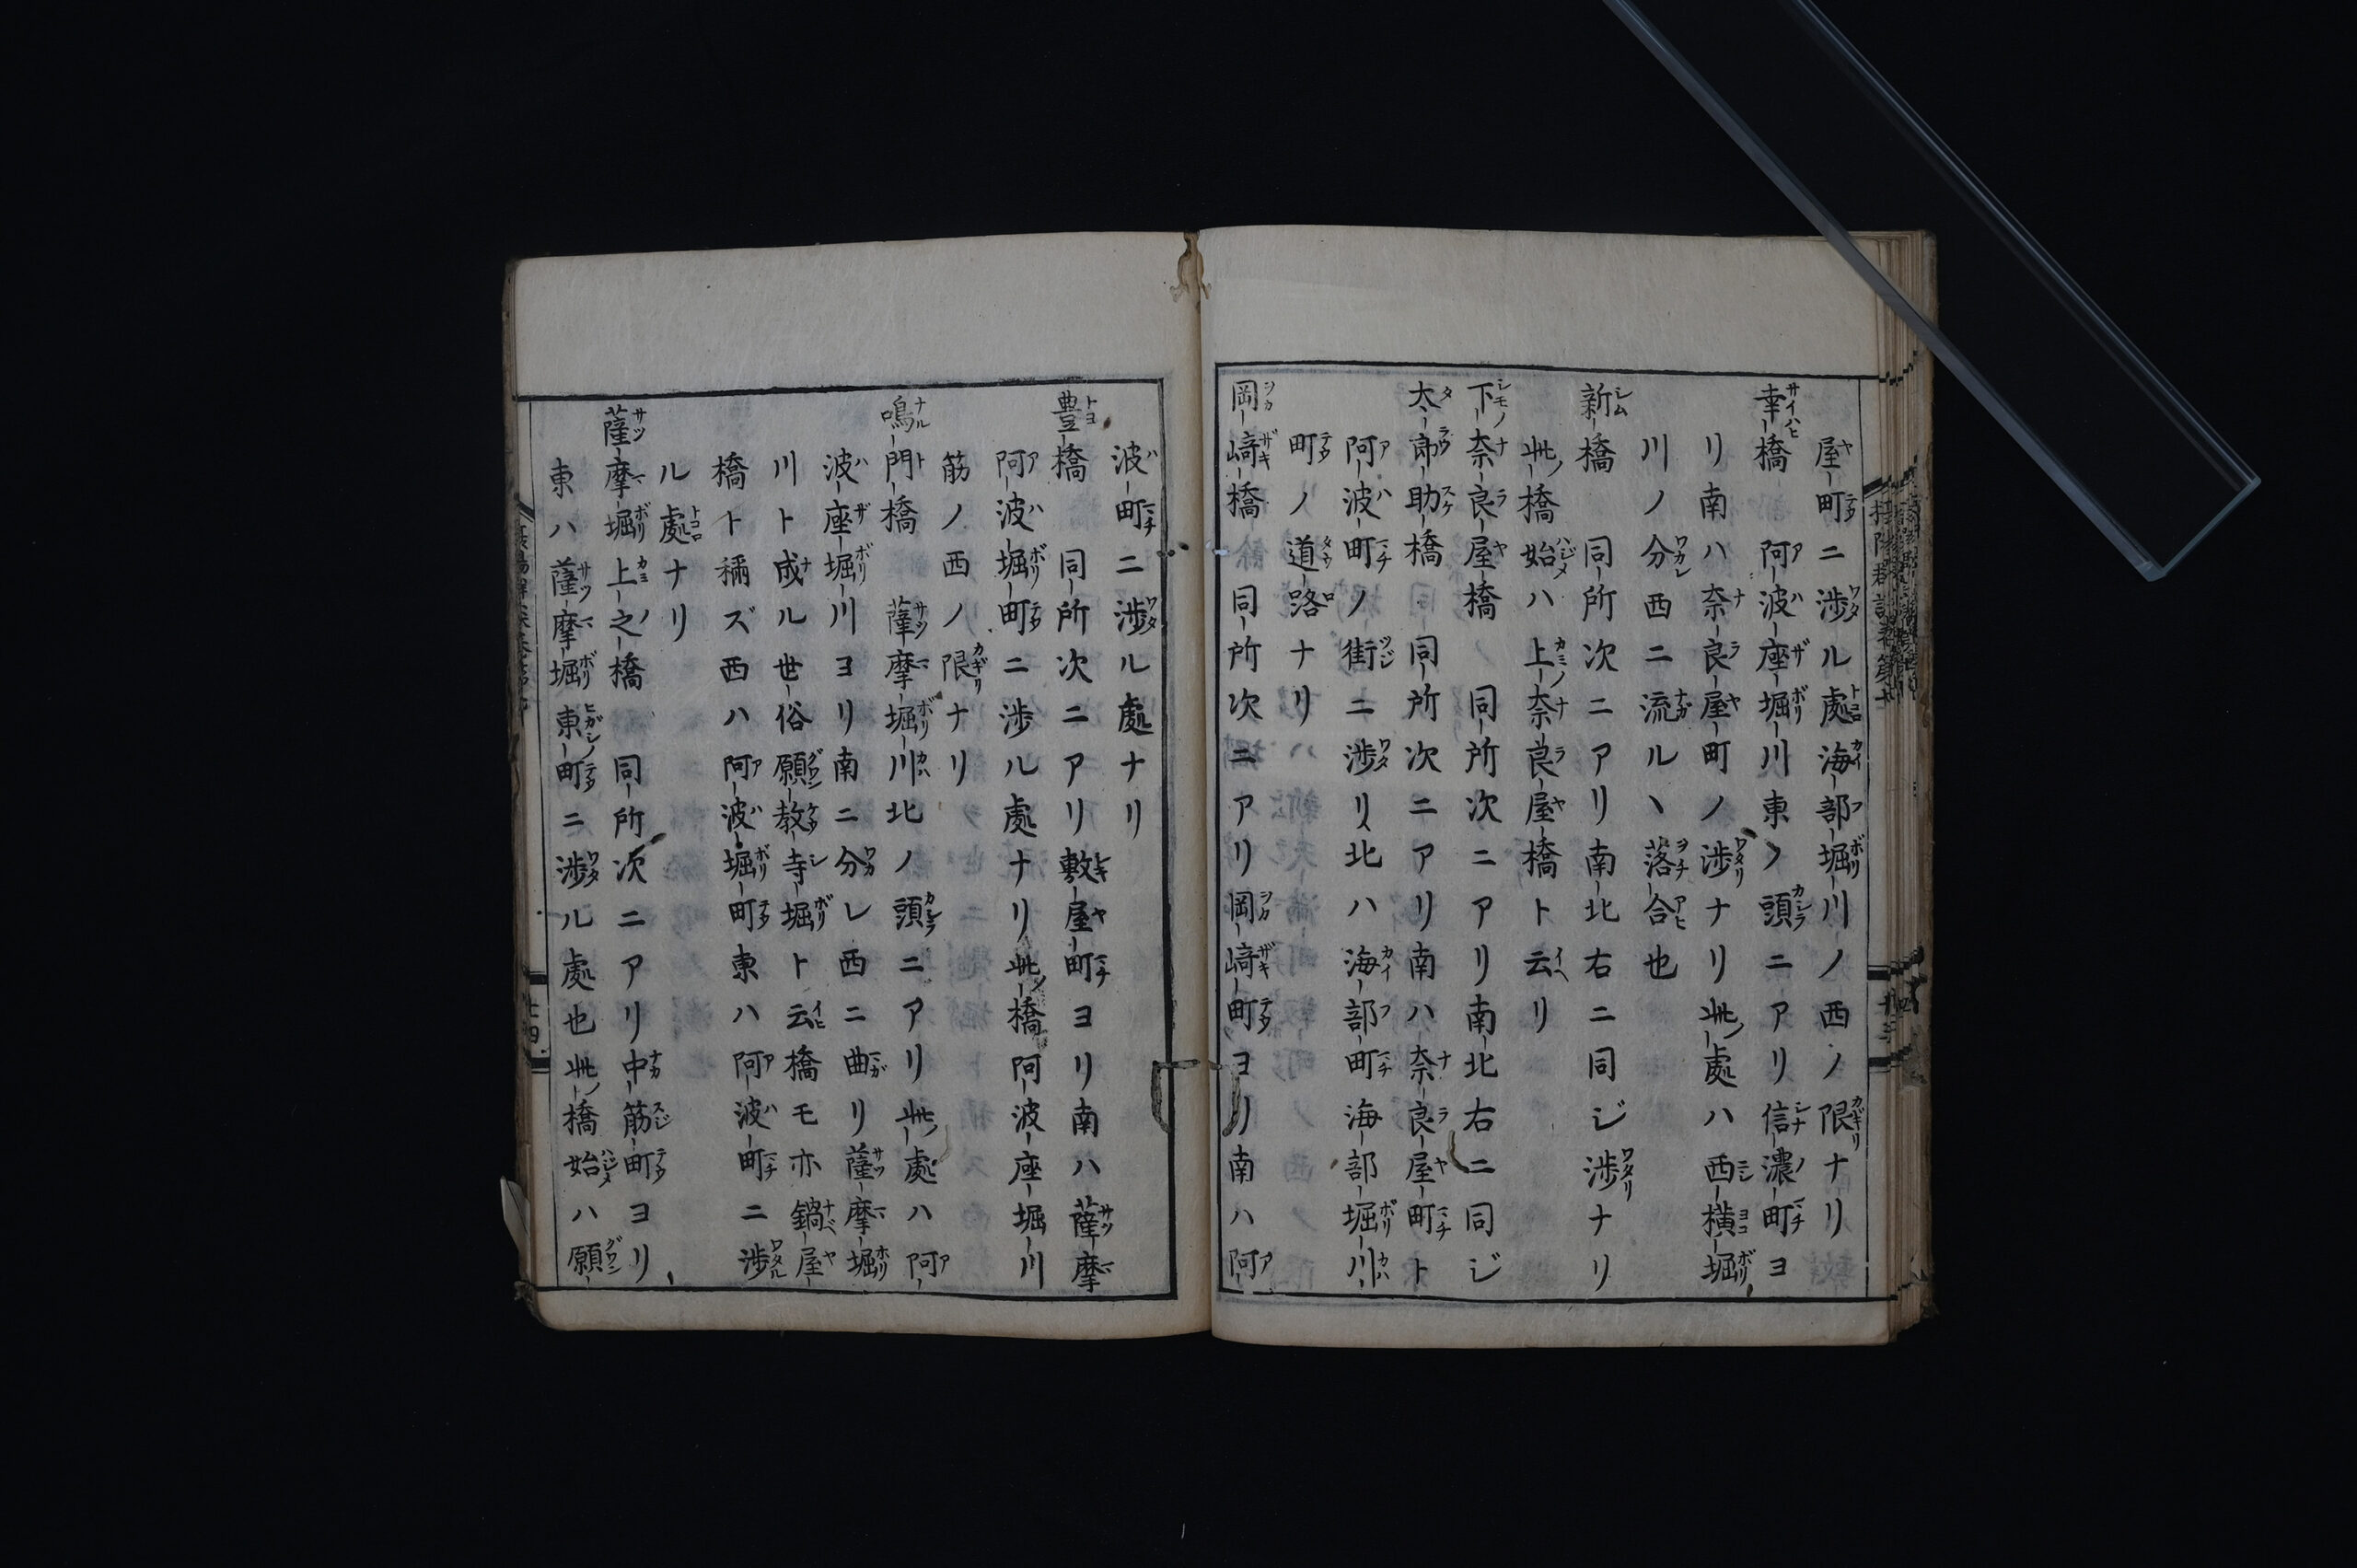 屋町ニ渉ル處海部堀川ノ西ノ限ナリ
幸橋 阿波座堀川東ノ頭ニアリ信濃町ヨ
リ南ハ奈良屋町ノ渉ナリ此處ハ西横堀
川ノ分西ニ流ルヽ落合也
新橋 同所次ニアリ南北右ニ同ジ渉ナリ
此橋始ハ上奈良屋橋ト云リ
下奈良屋橋 同所次ニアリ南北右ニ同ジ
太郎助橋 同所次ニアリ南ハ奈良屋町ト
阿波町ノ街ニ渉リ北ハ海部町海部堀川
町ノ道路ナリ
岡﨑橋 同所次ニアリ岡﨑町ヨリ南ハ阿
波町ニ渉ル處ナリ
豊橋 同所次ニアリ敷屋町ヨリ南ハ薩摩
阿波堀町ニ渉ル處ナリ此橋阿波座堀川
筋ノ西ノ限ナリ
鳴門橋 薩摩堀川北ノ頭ニアリ此處ハ阿
波座堀川ヨリ南ニ分レ西ニ曲リ薩摩堀
川ト成ル世俗願教寺堀ト云橋モ亦鍋屋
橋ト稱ズ西ハ阿波堀町東ハ阿波町ニ渉
ル處ナリ
薩摩堀上之橋 同所次ニアリ中筋町ヨリ
東ハ薩摩堀東町ニ渉ル處也此橋始ハ願